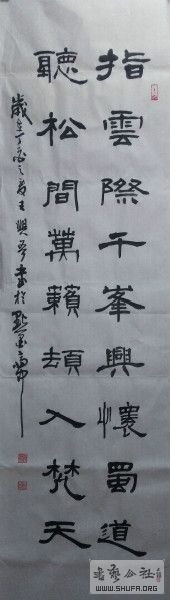 指雲際千峯興懷蜀道
聽松間萬籟頓入梵天
歲在丁亥之夏王興夢書於
WWW.SHUFA.ORG